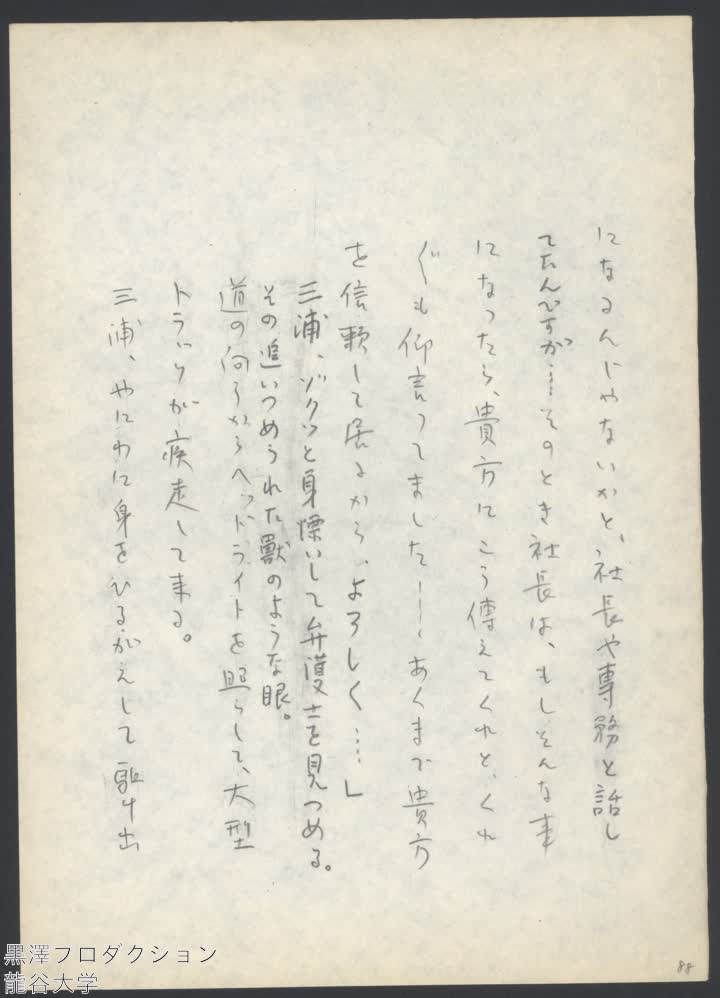 になるんじゃないかと、社長や専務と話し
てたんですが…そのとき社長は、もしそんな事
になったら、貴方にこう傳えてくれと、くれ
ぐも仰言ってました――あくまで貴方
を信頼して居るから、よろしく…」
三浦、ゾクッと身慄いして弁護士を見つめる。
その追いつめられた獣のような眼。
道の向うからヘッドライトを照らして、大型
トラックが疾走して来る。
三浦、やにわに身をひるがえして駈け出
88
黒澤プロダクション
龍谷大学